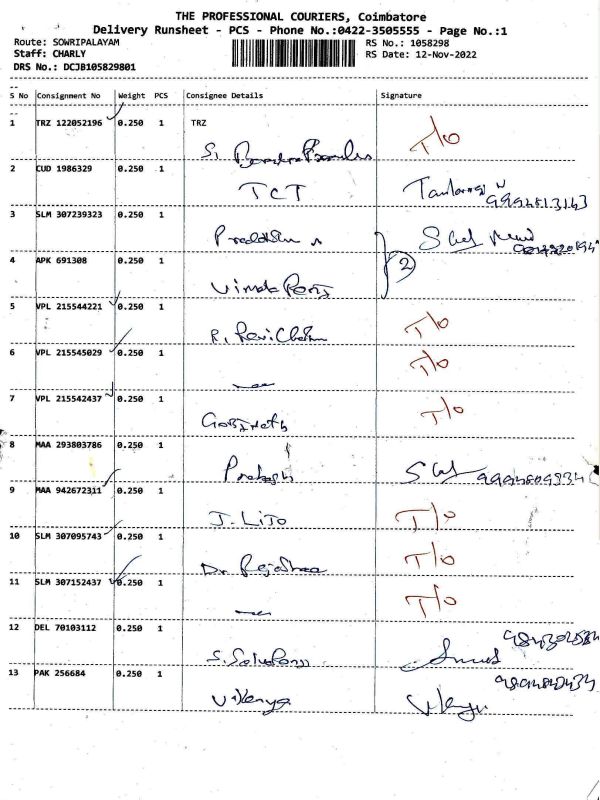 THE PROFESSIONAL COURIERS, Coimbatore
Delivery Runsheet - PCS - Phone No.:0422-3505555 - Page No.:1
Route: SOWRIPALAYAM
RS No.: 1058298
Staff: CHARLY
RS Date: 12-Nov-2022
DRS No.: DCJB105829801
S No Consignment No Weight PCS Consignee Details Signature
1 TRZ 122052196 0.250 1 TRZ T/o
S.
2 CUD 1986329 0.250 1
TCT
3 SLM 307239323 0.250 1
4 APK 691308 0.250 1 2
5 VPL 215544221 0.250 1
R. T/o
6 VPL 215545029 0.250 1 T/o
7 VPL 215542437 0.250 1 T/o
Gobinath
8 MAA 293803786 0.250 1
Prakash
9 MAA 942672311 0.250 1
J. Lijo T/o
10 SLM 307095743 0.250 1
Dr. T/o
11 SLM 307152437 0.250 1
T/o
12 DEL 70103112 0.250 1
S.
13 PAK 256684 0.250 1